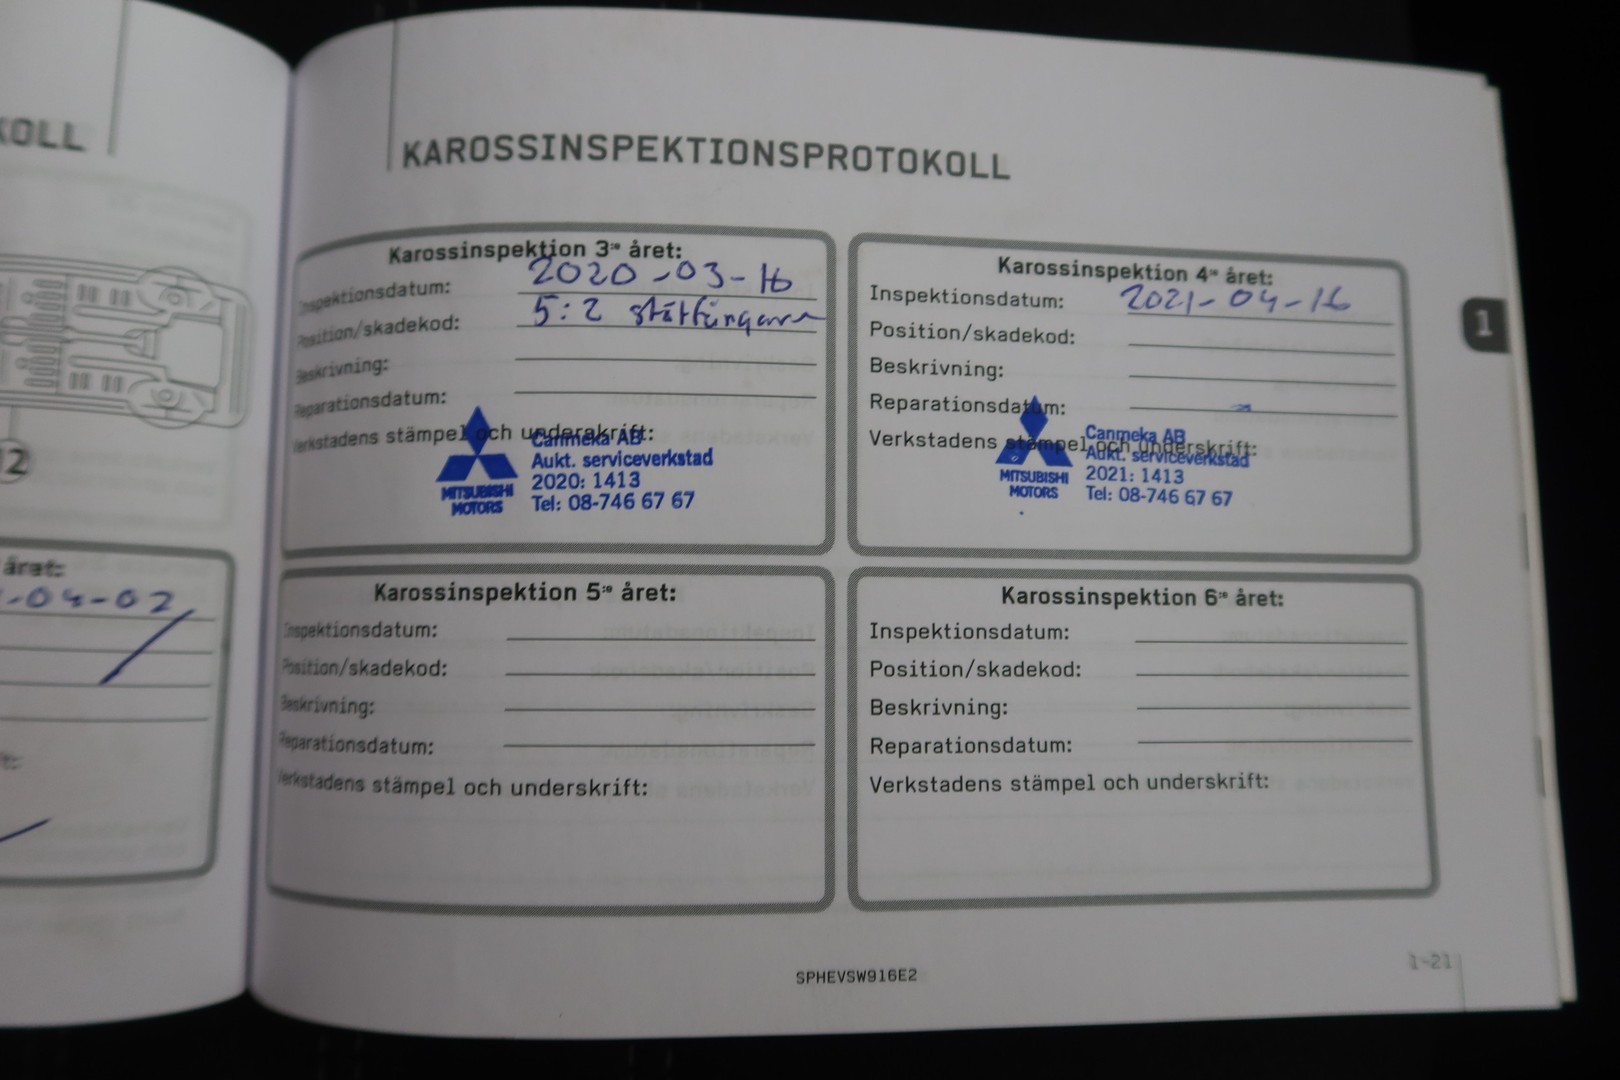 KOLL
12
året:
-04-02
KAROSSINSPEKTIONSPROTOKOLL
Karossinspektion 3:e året:
Inspektionsdatum: 2020-03-16
Position/skadekod: 5:2 stötfångare
Beskrivning:
Reparationsdatum:
Verkstadens stämpel och underskrift:
MITSUBISHI
MOTORS
Canmeka AB
Aukt. serviceverkstad
2020: 1413
Tel: 08-746 67 67
Karossinspektion 4:e året:
Inspektionsdatum: 2021-04-16
Position/skadekod:
Beskrivning:
Reparationsdatum:
Verkstadens stämpel och underskrift:
MITSUBISHI
MOTORS
Canmeka AB
Aukt. serviceverkstad
2021: 1413
Tel: 08-746 67 67
1
Karossinspektion 5:e året:
Inspektionsdatum:
Position/skadekod:
Beskrivning:
Reparationsdatum:
Verkstadens stämpel och underskrift:
Karossinspektion 6:e året:
Inspektionsdatum:
Position/skadekod:
Beskrivning:
Reparationsdatum:
Verkstadens stämpel och underskrift:
SPHEVSW916E2
1-21